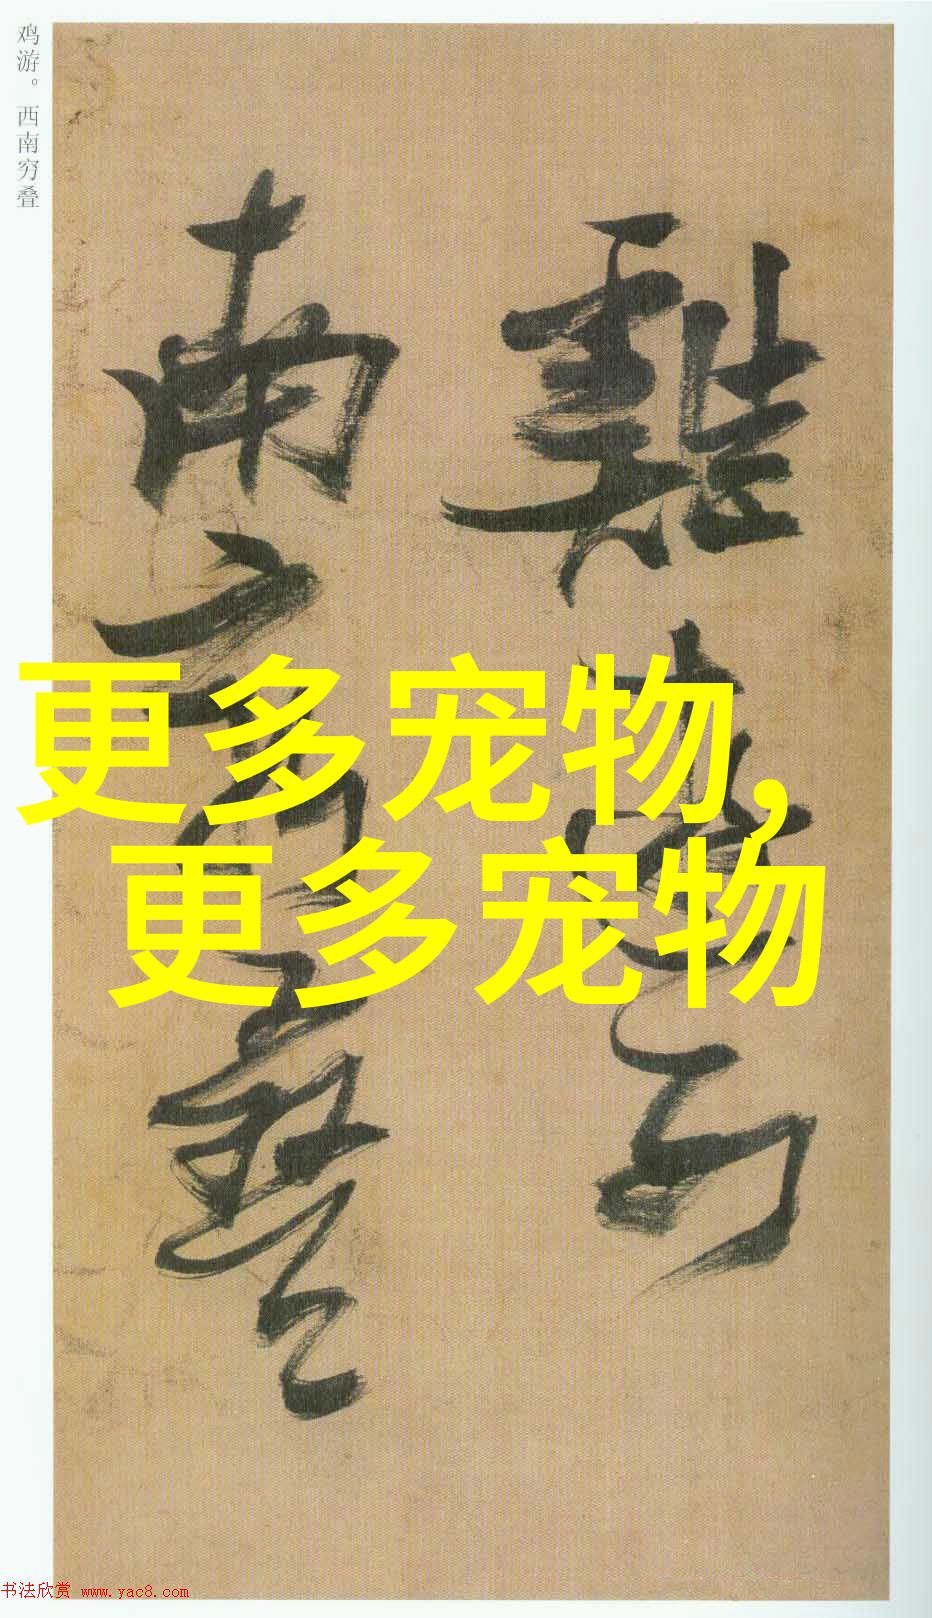 鸡游。西南穷叠
雞遊西
南窮疊
更多宠物,
更多宠物
书法欣赏 www.yac8.com